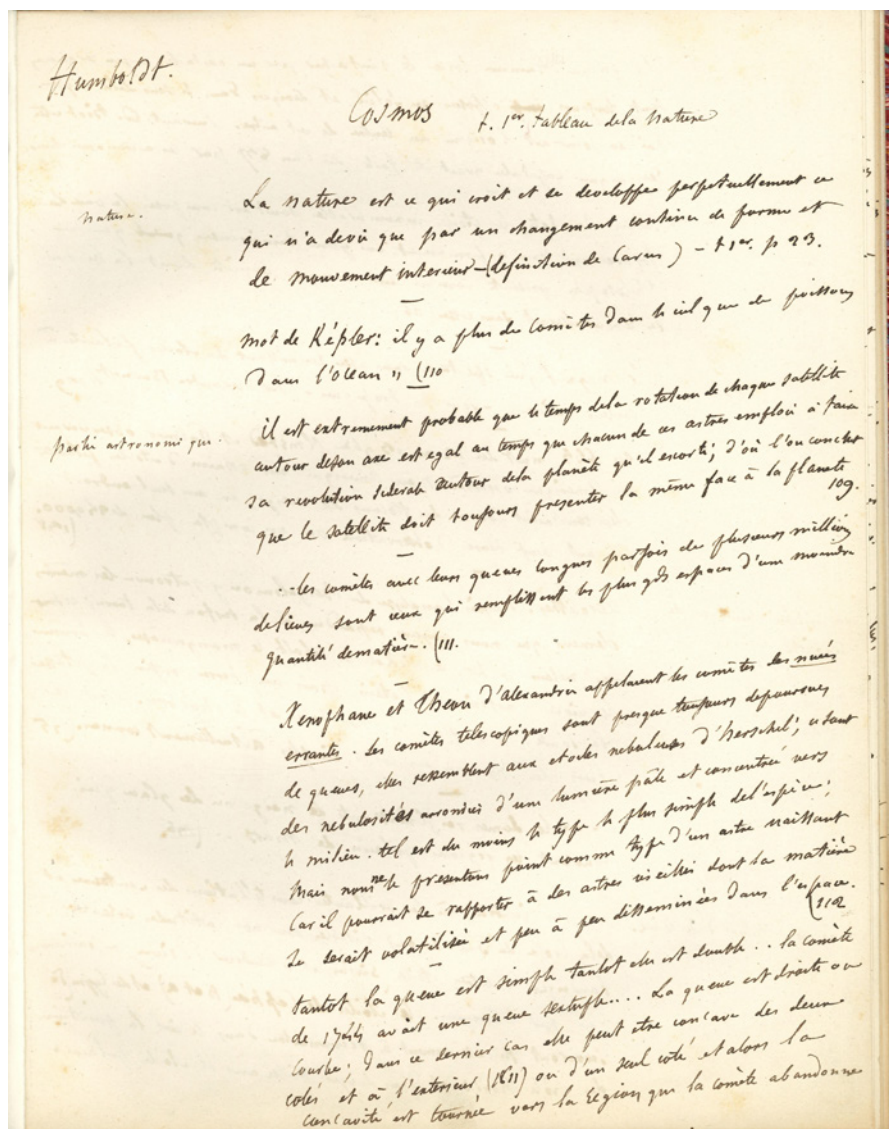 Humboldt.
Cosmos t. 1er. tableau de la nature
nature.
La nature est ce qui croit et se developpe perpetuellement ce
qui n'a de vie que par un changement continu de forme et
de mouvement interieur - (definition de Carus) - t 1er. p 23.
mot de Képler: il y a plus de comètes dans le ciel que de poissons
dans l'ocean " (110
partie astronomique.
il est extremement probable que le temps de la rotation de chaque satellite
autour de son axe est egal au temps que chacun de ces astres emploi à faire
sa revolution siderale autour de la planète qu'il escorte; d'où l'on conclut
que le satellite doit toujours presenter la même face à la planete
109.
..les comètes avec leurs queues longues parfois de plusieurs millions
de lieues sont ceux qui remplissent les plus gds espaces d'une moindre
quantité de matière. (111.
Xenophane et Theon d'alexandrie appelaient les comètes des nuées
errantes. les comètes telescopiques sont presque toujours depourvues
de queues, elles ressemblent aux etoiles nebuleuses d'herschel; ce sont
des nebulosités arrondies d'une lumière pâle et concentrée vers
le milieu. tel est du moins le type le plus simple de l'espèce;
mais nous ne le presentons point comme type d'un astre naissant
car il pourrait se rapporter à des astres vieillis dont la matière
se serait volatilisée et peu à peu disseminées dans l'espace.
(112
tantot la queue est simple tantot elle est double.. la comète
de 1744 avait une queue sextuple.... La queue est droite ou
courbe; dans ce dernier cas elle peut etre concave des deux
cotés et à l'exterieur (1811) ou d'un seul coté et alors la
concavité est tournée vers la region que la comète abandonne